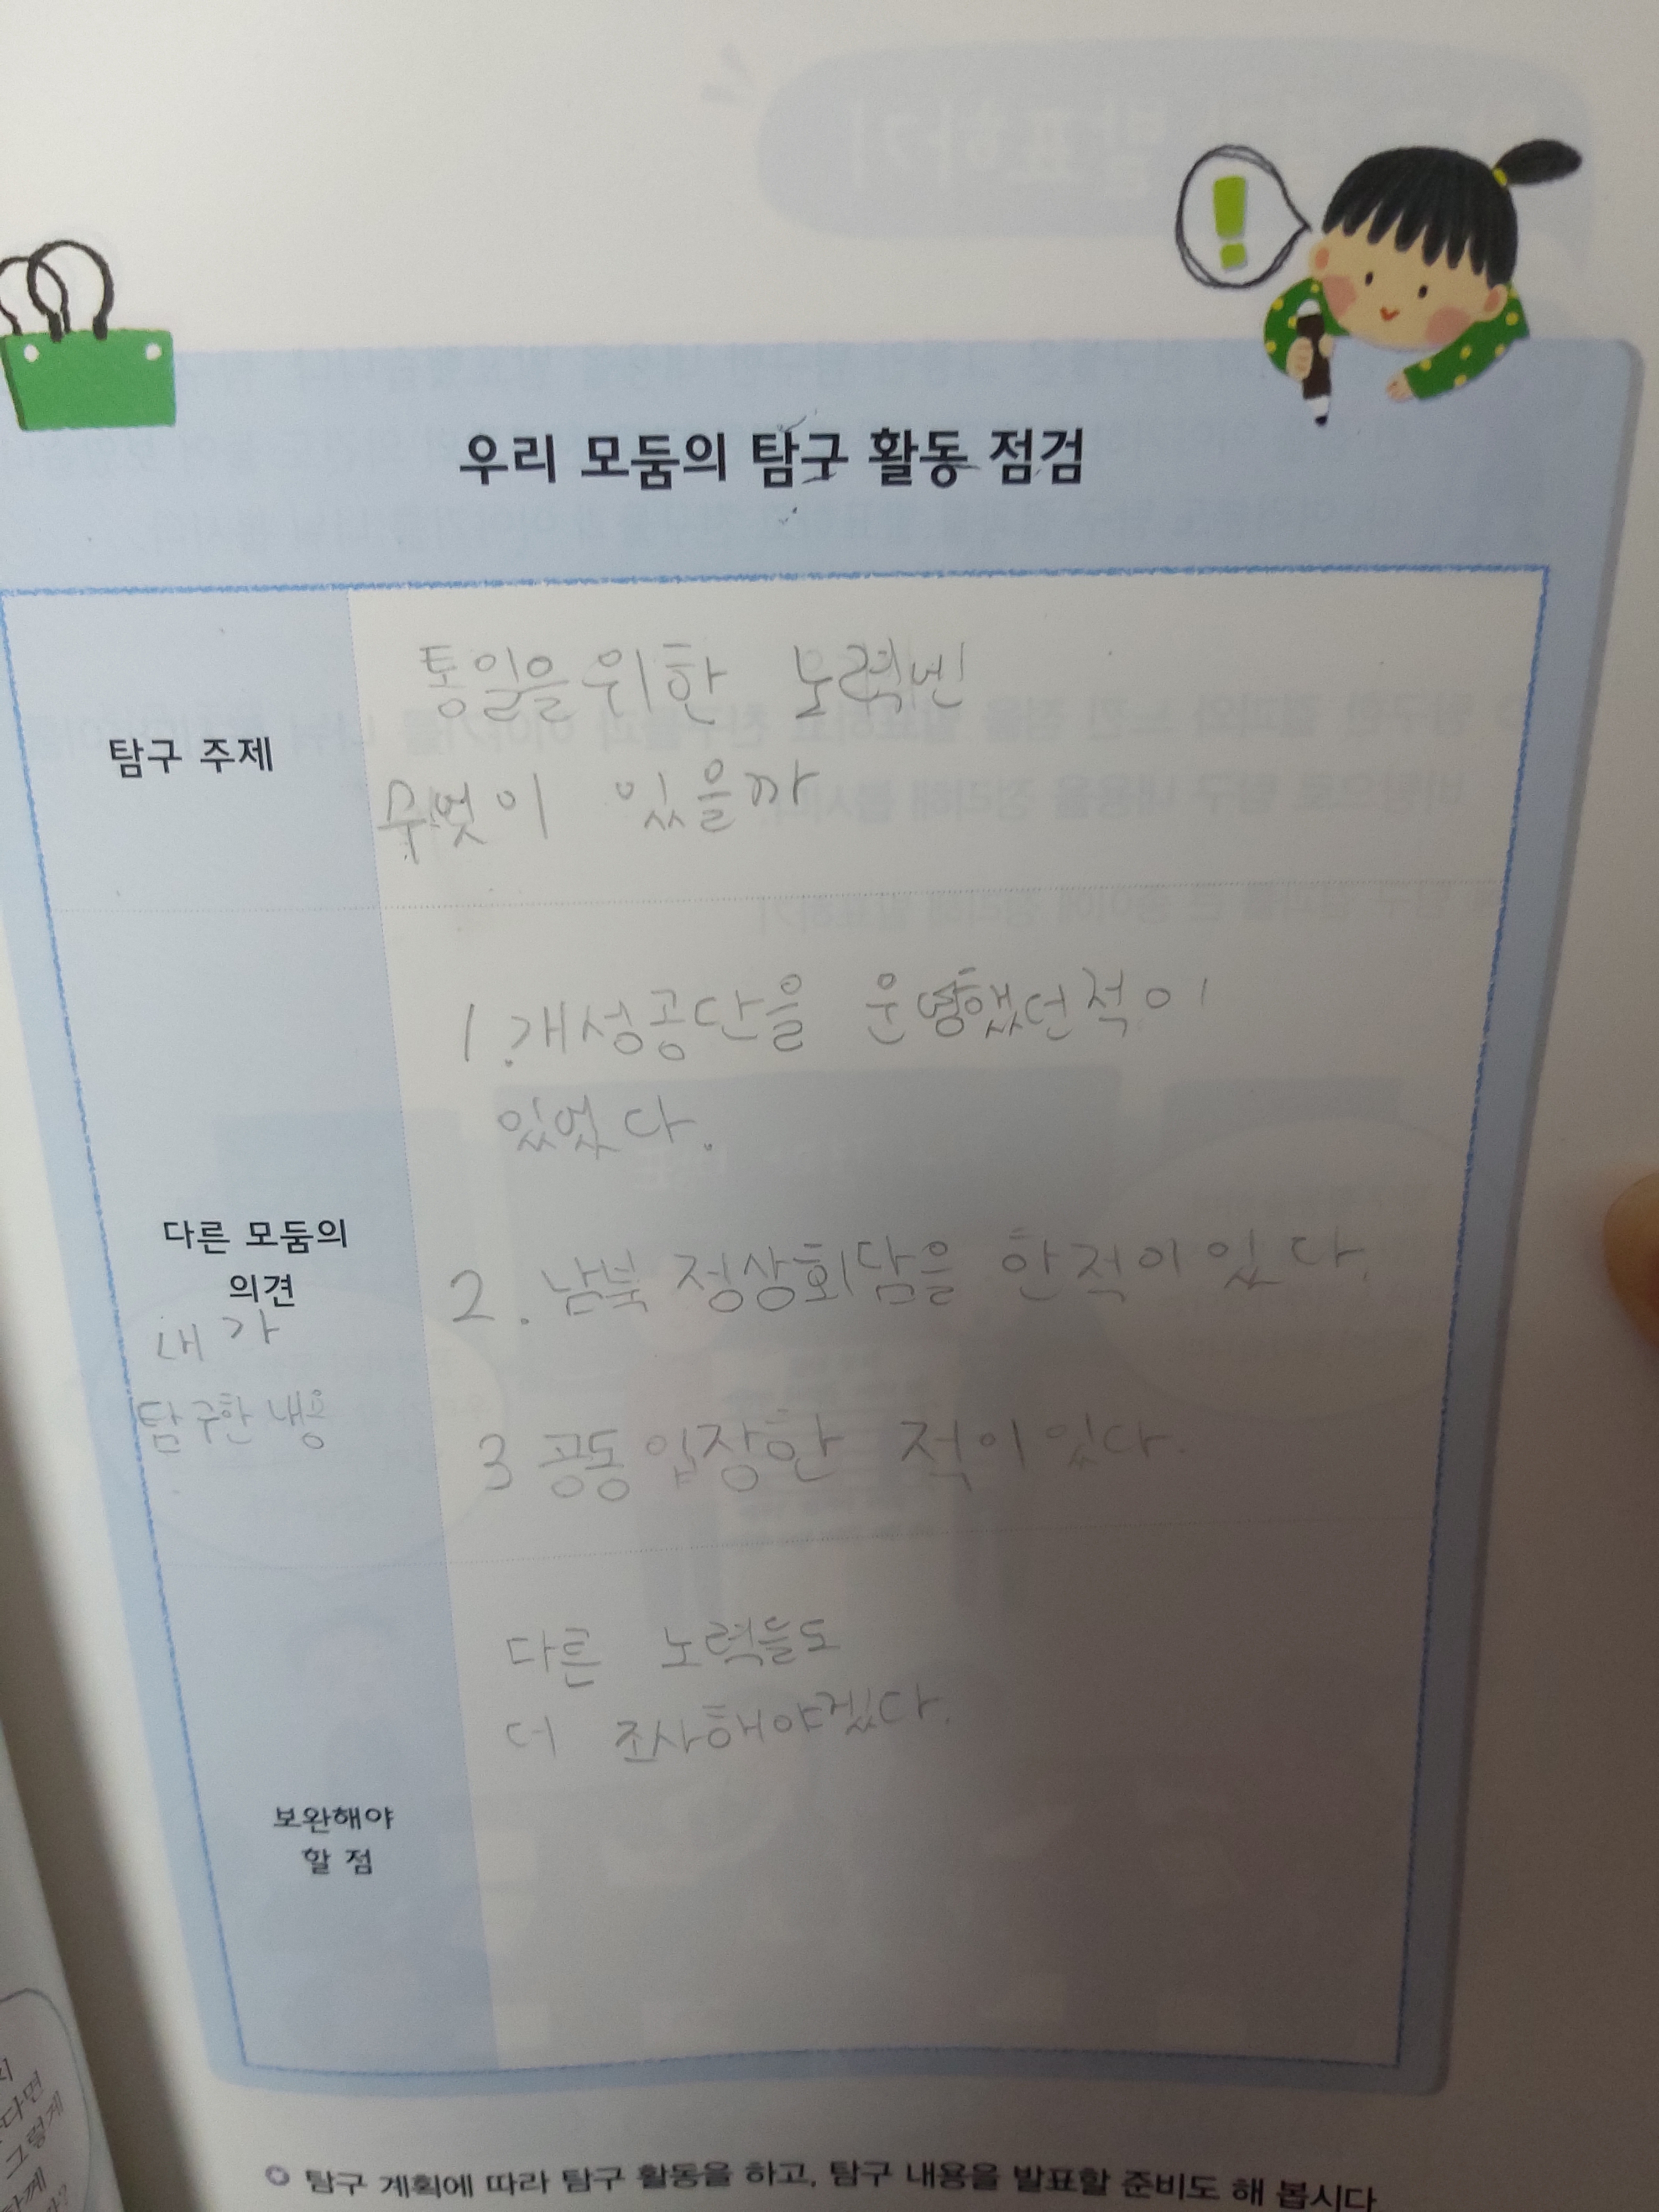 우리 모둠의 탐구 활동 점검
탐구 주제
통일을 위한 노력엔
무엇이 있을까
다른 모둠의
의견
내가
탐구한 내용
1. 개성공단을 운영했던적이
있었다.
2. 남북 정상회담을 한적이 있다.
3 공동입장한 적이있다.
보완해야
할 점
다른 노력들도
더 조사해야겠다.
탐구 계획에 따라 탐구 활동을 하고, 탐구 내용을 발표할 준비도 해 봅시다.
다면
그렇게